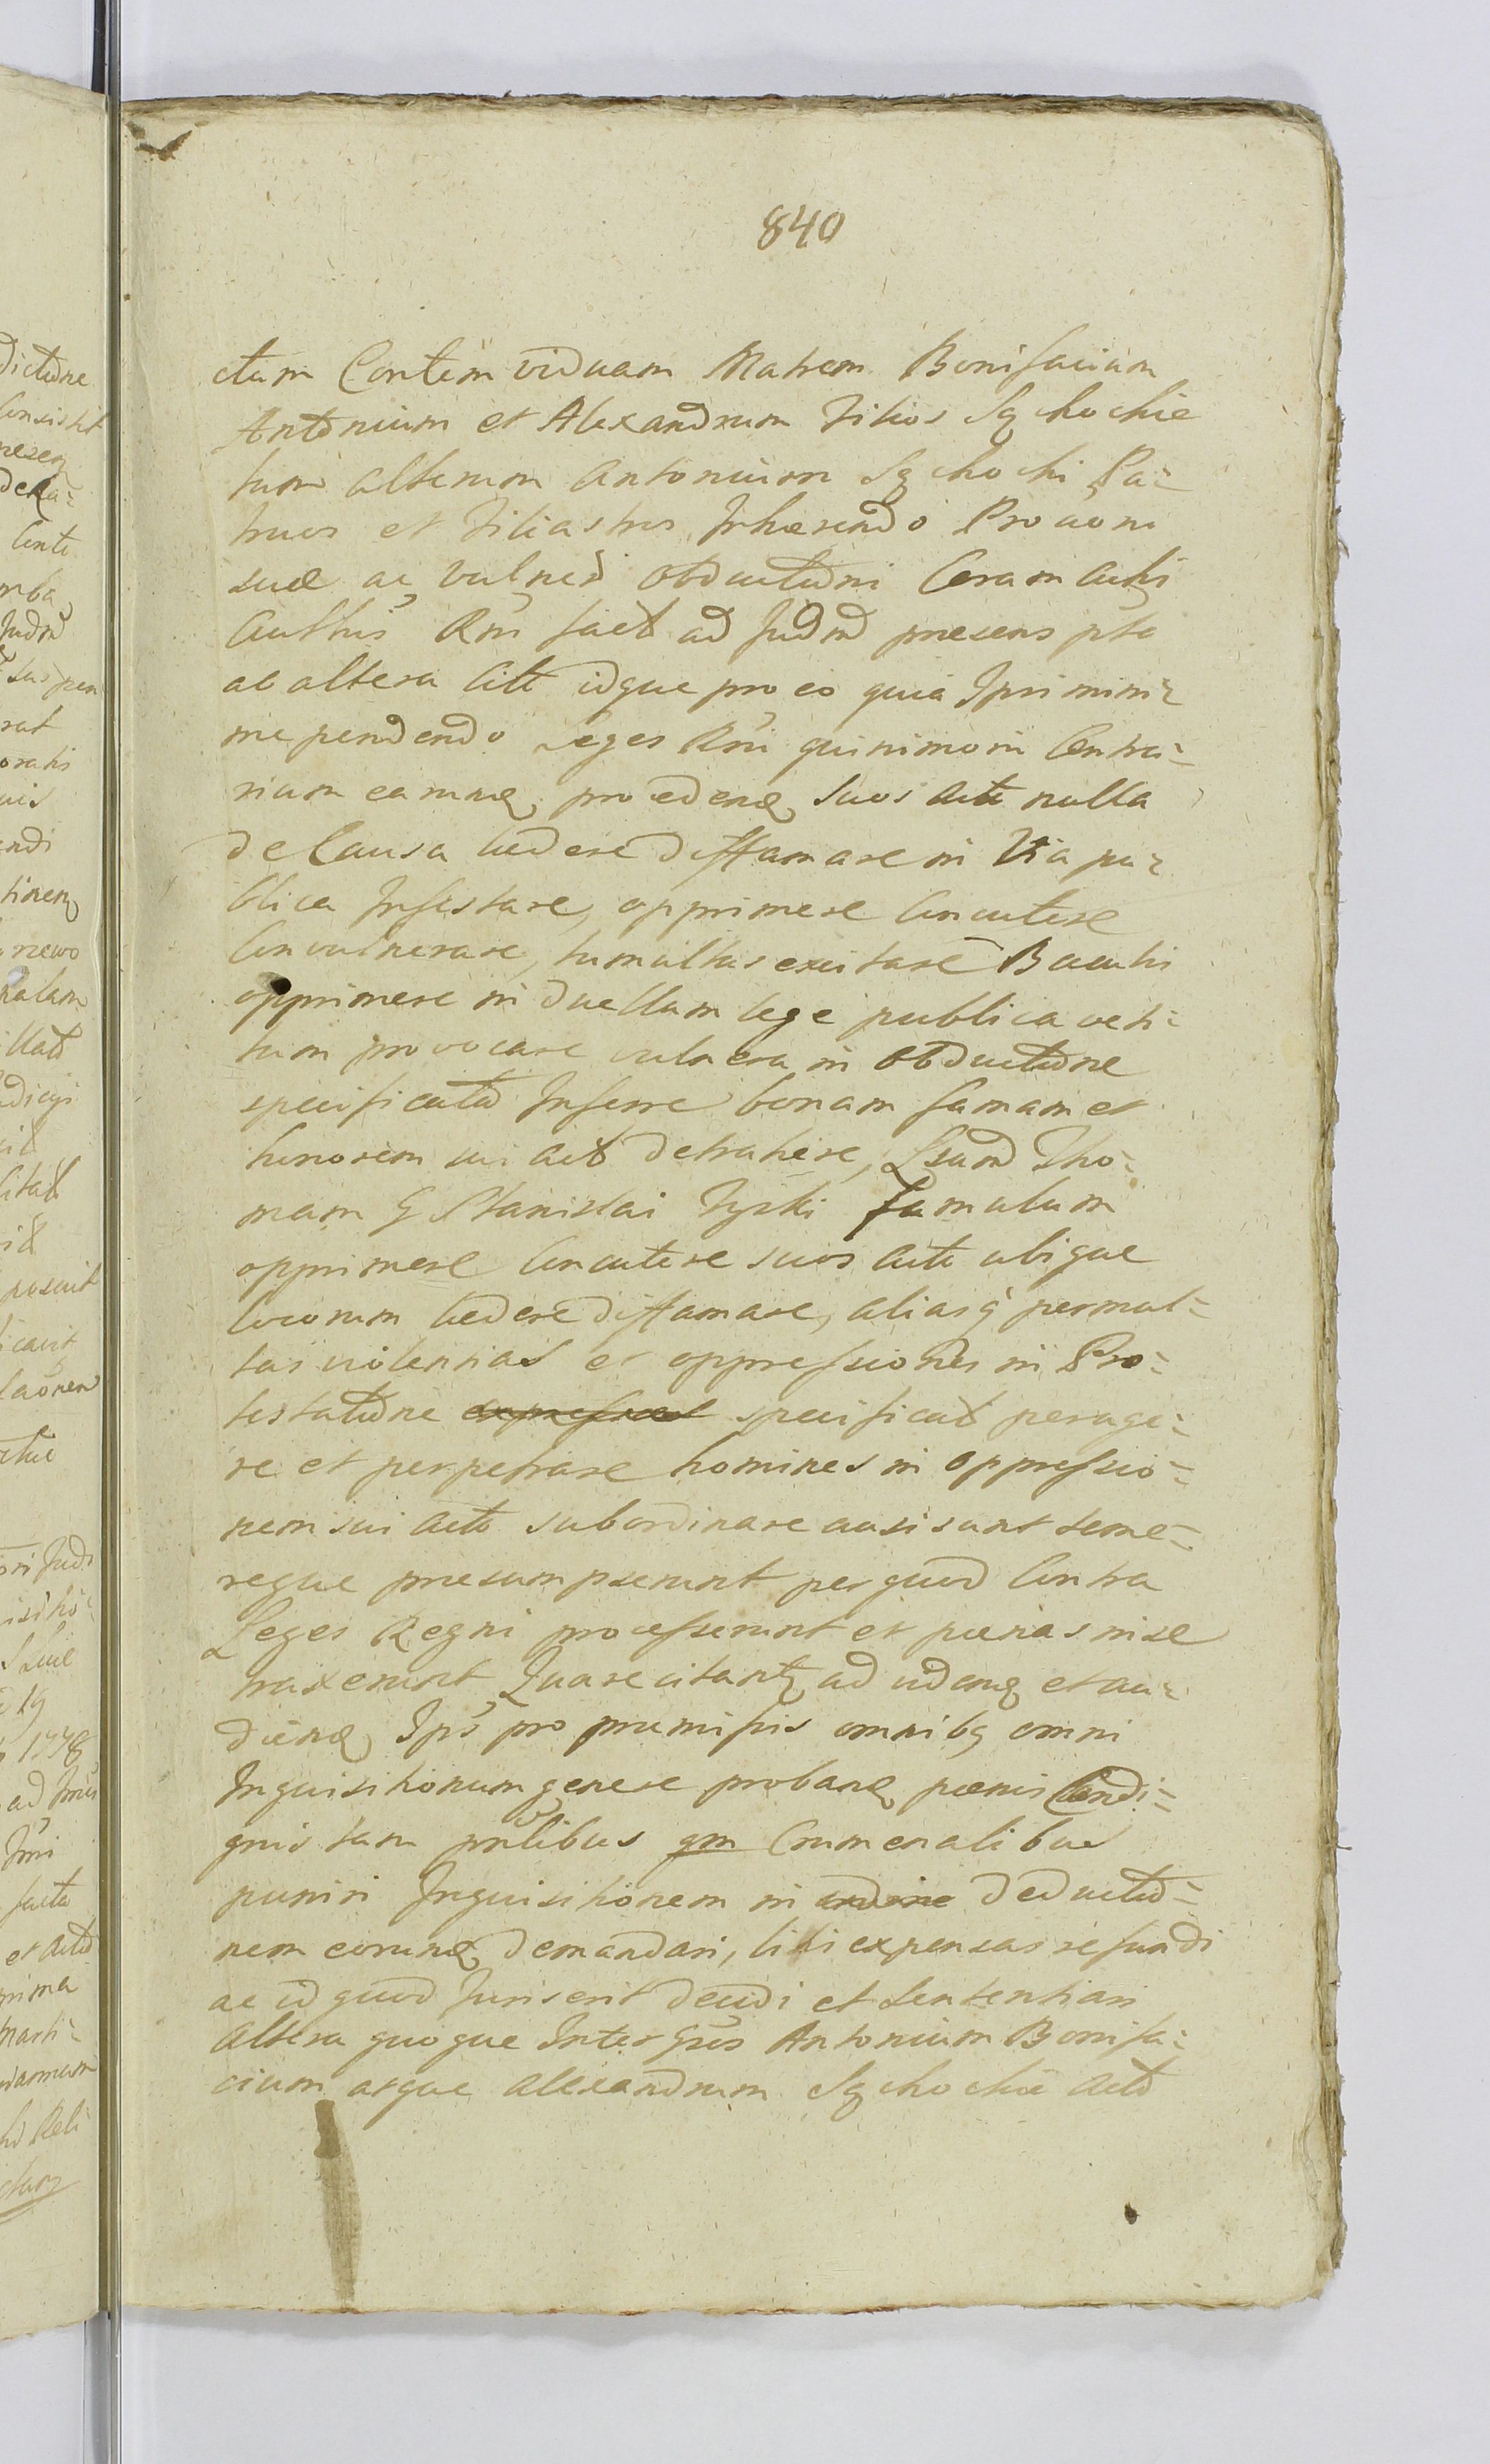 840
ctam Contem viduam Matrem Bonifacium
Antonium et Alexandrum Filios Sq chochie
tum alterum Antonium Sq chochi Pa=
truos et Filiastros Inhærendo Pro aoni
suæ ac vulned obductioni Coram Actis
Authis Rni fact ad Judm præsens pto
ac altera Citt idque pro eo quia Ipsi mini=
me pendendo Leges Rni quinimo in Contra=
rium earunq procedenq suos Acte nulla
de Causa lædere diffamare in Via pu=
blica Infestare, opprimere Concutere
Convulnerare, tumultus excitare Baculis
opprimere in duellum lege publica veti=
tum provocare vulnera in obductione
specificata Inferre bonam famam et
honorem sui Act detrahere, Lsum Tho=
mam G Stanislai Tyski famulum
opprimere Concutere suos Acte ubique
locorum lædere diffamare, aliasq permul=
tas violentias et oppressiones in Pro=
testatione expressas specificat perage=
re et perpetrare homines in oppressio=
nem sui Acto subordinare ausi sunt teme=
reque præsumpserunt per quod Contra
Leges Regni processerunt et pænas in se
traxerunt Quare citantq ad videnq et au=
dienq Ips pro præmissis omnibq omni
Inquisitionum genere probanq pænis Condi=
gnis tam prlibus qm Crumenalibus
puniri Inquisitionem in ordine deductio=
nem eorunq demandari, litis expensas refundi
ac id quod Juris erit decidi et sententiari
Altera quoque Inter Gsos Antonium Bonifa=
cium atque Alexandrum Sq chochie Acto